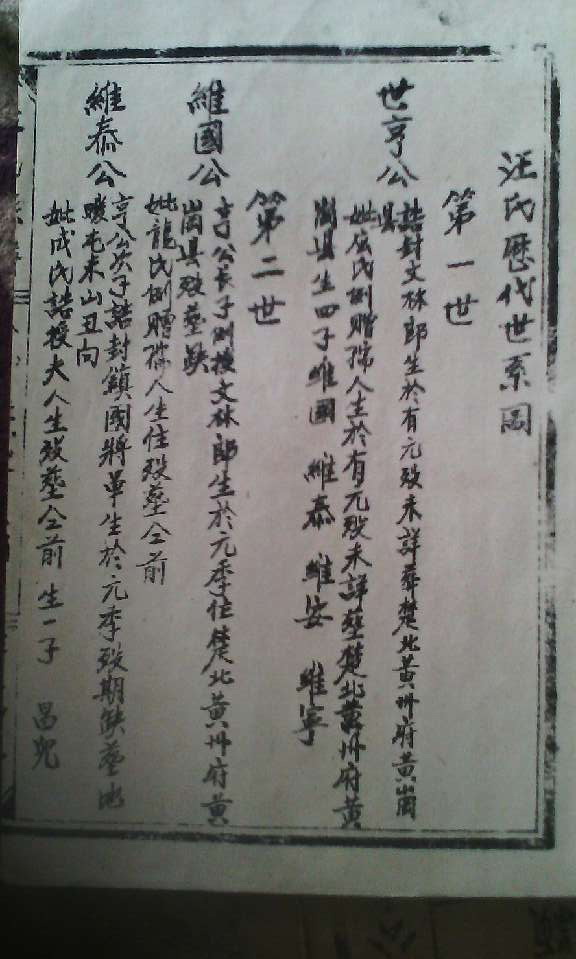 汪氏歷代世系圖
第一世
世亨公
誥封文林郎生於有元歿未詳葬楚北黃州府黃崗
縣
妣氏例贈孺人生於有元歿未詳塟楚北黃州府黃
崗县生四子維國 維泰 維安 維寧
第二世
維國公
亨公長子例授文林郎生於元季住楚北黃州府黃
崗县歿塟缺
妣龍氏例贈孺人生住歿塟仝前
維泰公
亨公次子誥封鎮國將軍生於元季歿期缺塟地
屯末山丑向
妣成氏誥授夫人生歿塟仝前 生一子 昌